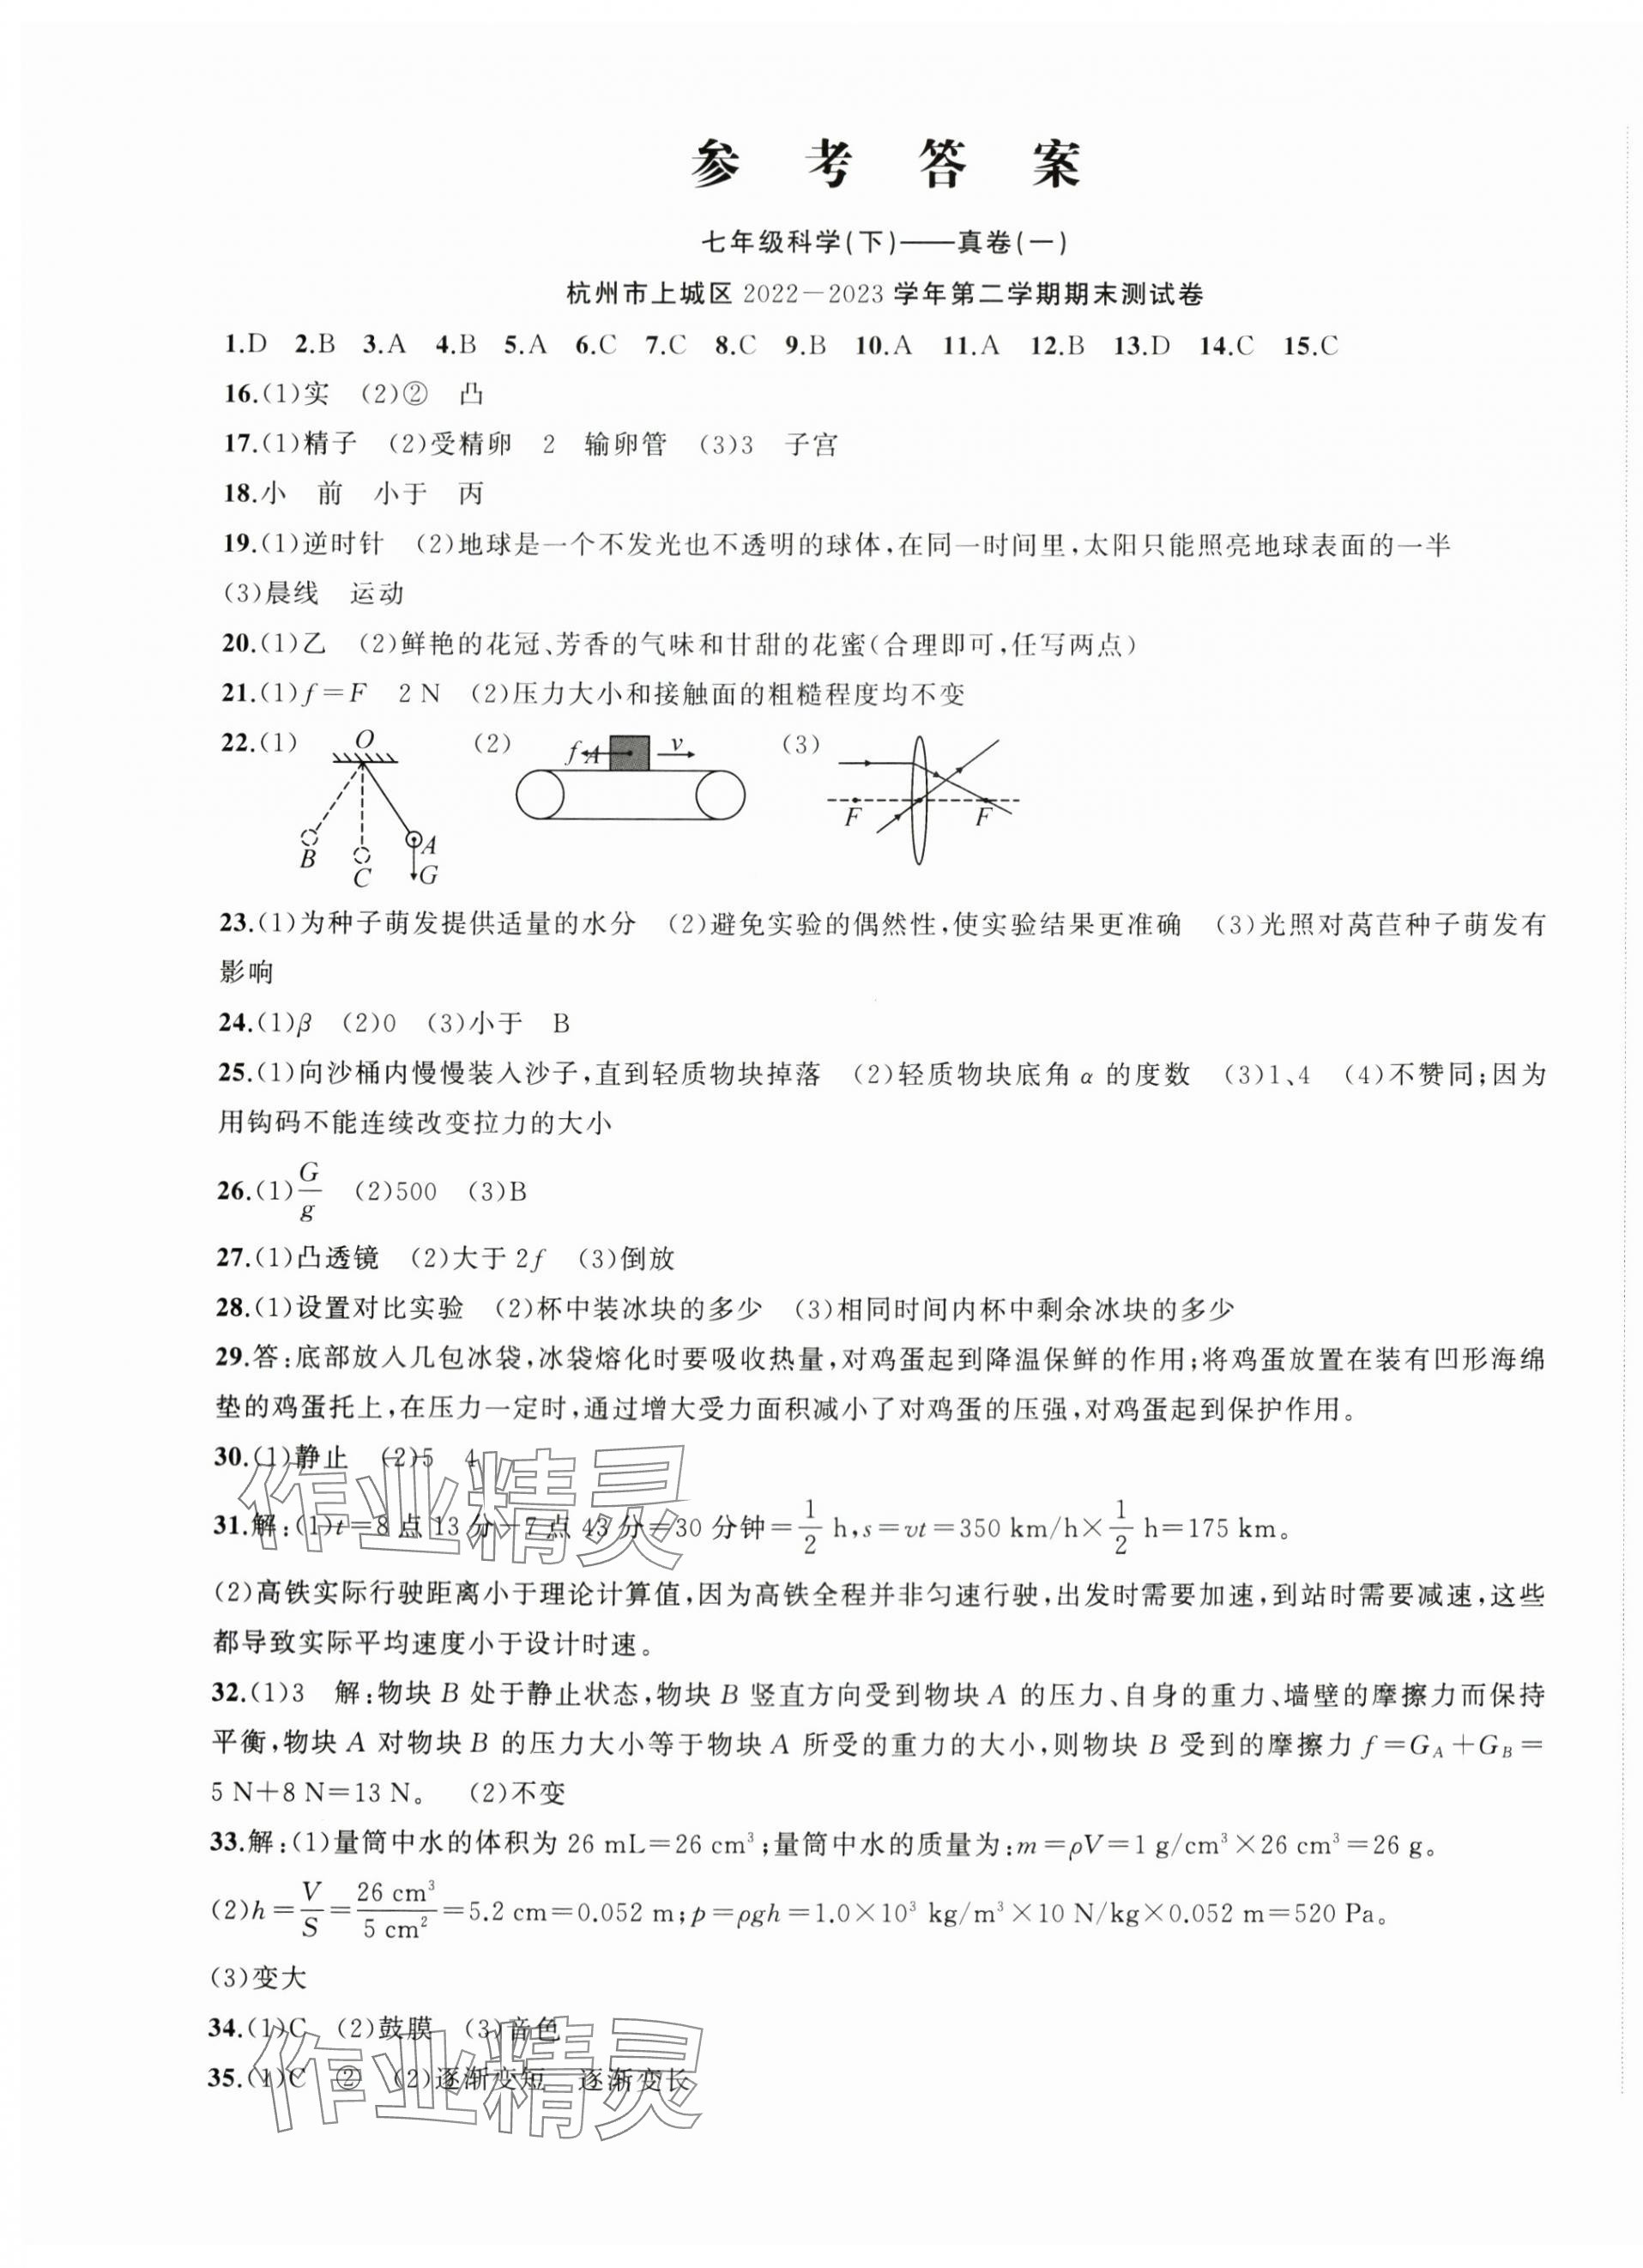 参 考 答 案
七年级科学(下)——真卷(一)
杭州市上城区 2022—2023 学年第二学期期末测试卷
1.D 2.B 3.A 4.B 5.A 6.C 7.C 8.C 9.B 10.A 11.A 12.B 13.D 14.C 15.C
16.(1)实 (2)② 凸
17.(1)精子 (2)受精卵 2 输卵管 (3)3 子宫
18.小 前 小于 丙
19.(1)逆时针 (2)地球是一个不发光也不透明的球体,在同一时间里,太阳只能照亮地球表面的一半
(3)晨线 运动
20.(1)乙 (2)鲜艳的花冠、芳香的气味和甘甜的花蜜(合理即可,任写两点)
21.(1)f=F 2 N (2)压力大小和接触面的粗糙程度均不变
22.(1) O B C A G (2) f A v (3) F F
23.(1)为种子萌发提供适量的水分 (2)避免实验的偶然性,使实验结果更准确 (3)光照对莴苣种子萌发有
影响
24.(1)β (2)0 (3)小于 B
25.(1)向沙桶内慢慢装入沙子,直到轻质物块掉落 (2)轻质物块底角 α 的度数 (3)1、4 (4)不赞同;因为
用钩码不能连续改变拉力的大小
26.(1)G/g (2)500 (3)B
27.(1)凸透镜 (2)大于 2f (3)倒放
28.(1)设置对比实验 (2)杯中装冰块的多少 (3)相同时间内杯中剩余冰块的多少
29.答:底部放入几包冰袋,冰袋熔化时要吸收热量,对鸡蛋起到降温保鲜的作用;将鸡蛋放置在装有凹形海绵
垫的鸡蛋托上,在压力一定时,通过增大受力面积减小了对鸡蛋的压强,对鸡蛋起到保护作用。
30.(1)静止 (2)5 4
31.解:(1)t=8 点 13 分-7 点 43 分=30 分钟=1/2 h,s=vt=350 km/h×1/2 h=175 km。
(2)高铁实际行驶距离小于理论计算值,因为高铁全程并非匀速行驶,出发时需要加速,到站时需要减速,这些
都导致实际平均速度小于设计时速。
32.(1)3 解:物块 B 处于静止状态,物块 B 竖直方向受到物块 A 的压力、自身的重力、墙壁的摩擦力而保持
平衡,物块 A 对物块 B 的压力大小等于物块 A 所受的重力的大小,则物块 B 受到的摩擦力 f=G_A+G_B=
5 N+8 N=13 N。 (2)不变
33.解:(1)量筒中水的体积为 26 mL=26 cm³;量筒中水的质量为:m=ρV=1 g/cm³×26 cm³=26 g。
(2)h=V/S=26 cm³/5 cm²=5.2 cm=0.052 m;p=ρgh=1.0×10³ kg/m³×10 N/kg×0.052 m=520 Pa。
(3)变大
34.(1)C (2)鼓膜 (3)音色
35.(1)C ② (2)逐渐变短 逐渐变长
作业精灵
作业精灵